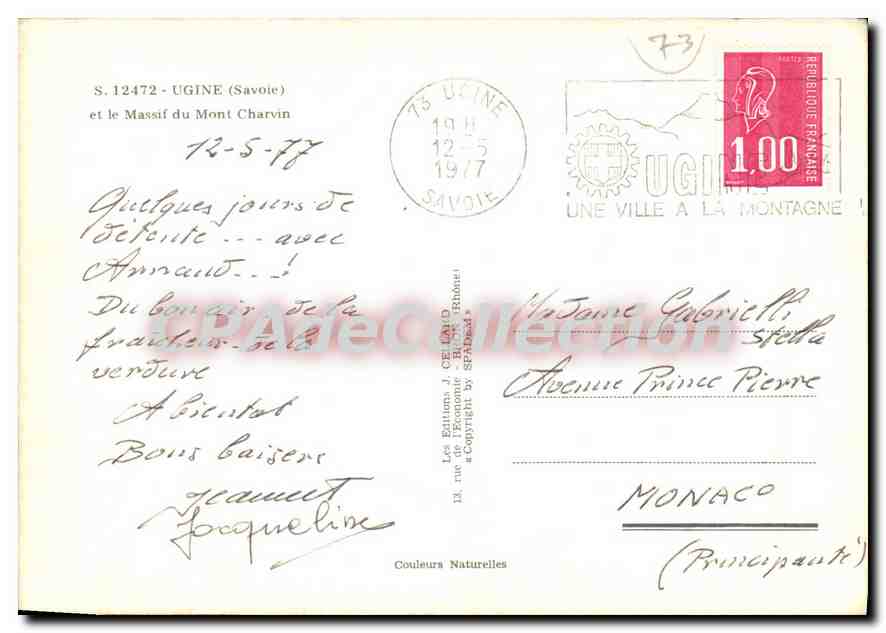 S. 12472 - UGINE (Savoie)
et le Massif du Mont Charvin
12-5-77
Quelques jours de
détente... avec
Armand...!
Du bon air de la
fraîcheur de la
verdure
A bientot
Bons baisers
Jeannot
Jacqueline
73
73 UGINE
19 H
12-5
1977
SAVOIE
UGINE
UNE VILLE A LA MONTAGNE !
POSTES
REPUBLIQUE FRANÇAISE
1,00
Les Editions J. CELLARD
13, rue de l'Economie - BRON (Rhône)
« Copyright by SPADEM »
Madame Gabrielli
Stella
Avenue Prince Pierre
MONACO
(Principauté)
Couleurs Naturelles
CPAdeCollection.com